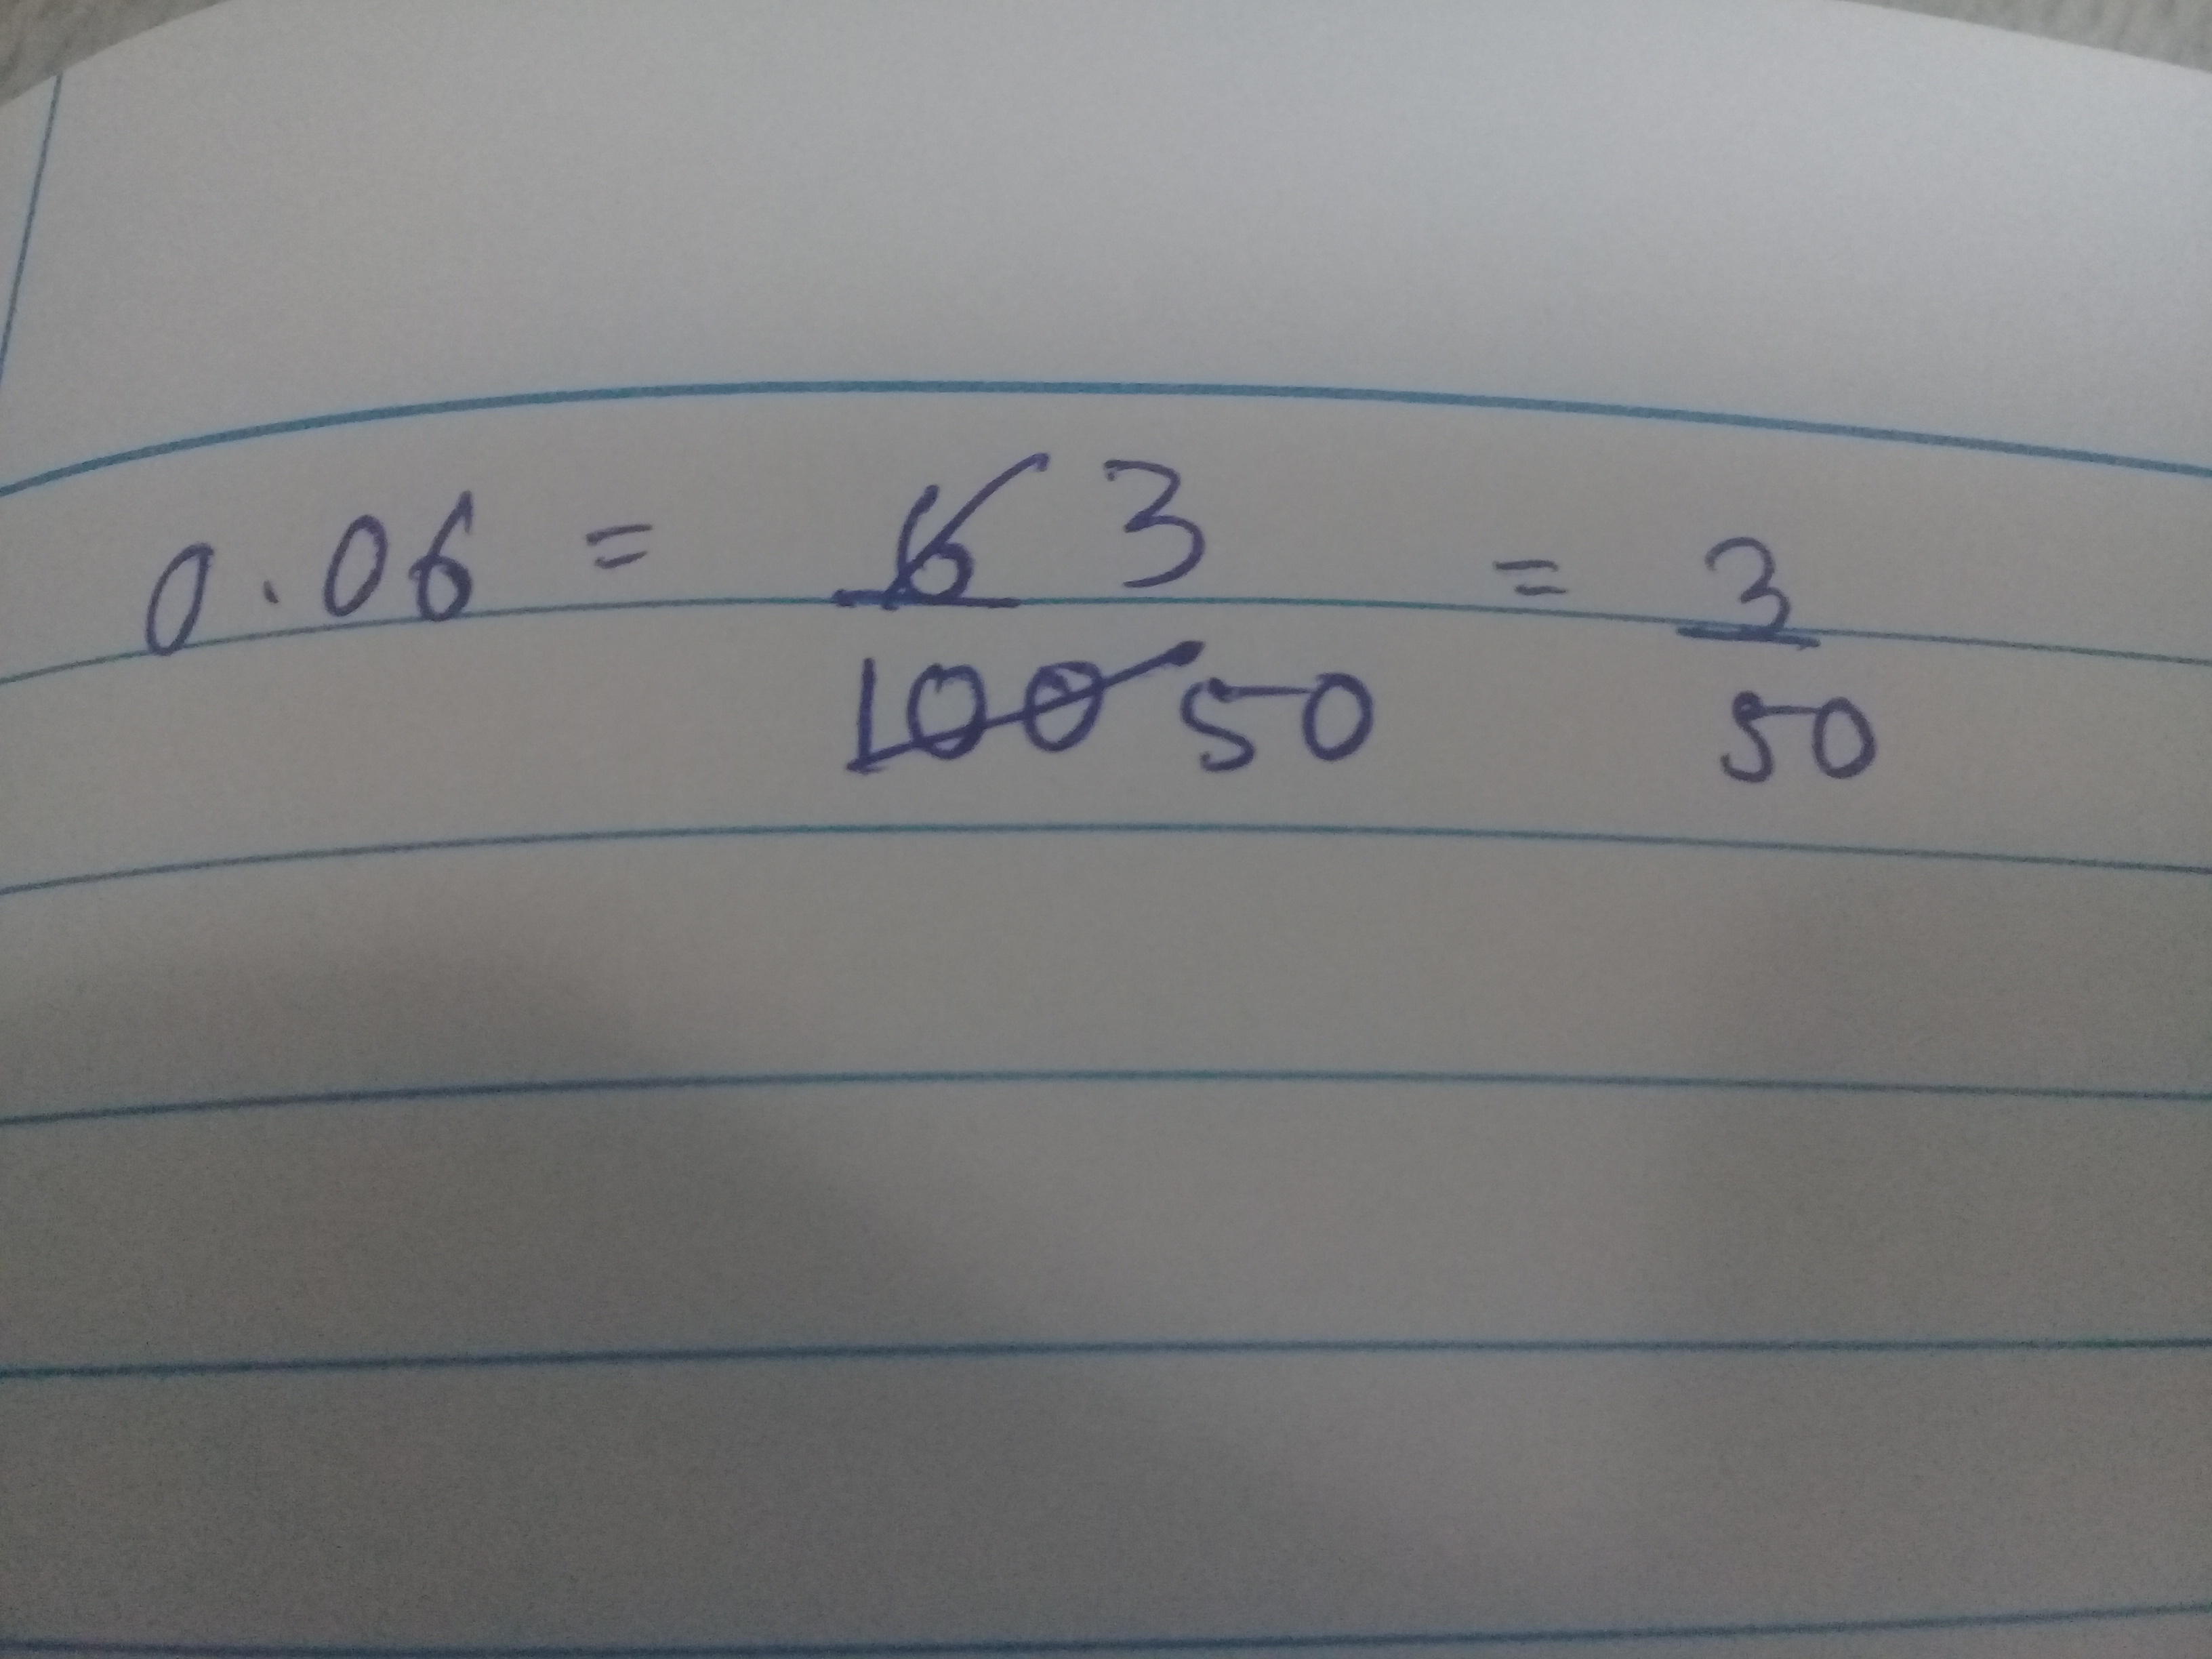 0.06 = 6 3 = 3
100 50 50